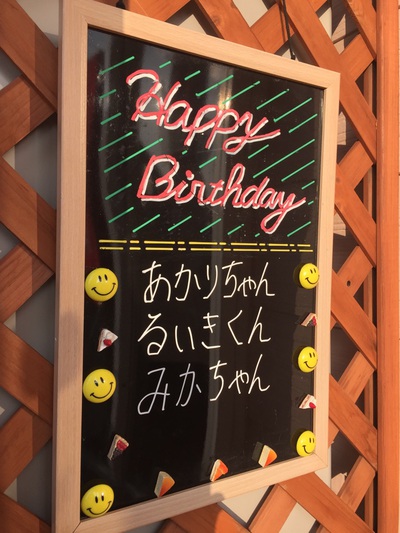 Happy
Birthday
あかりちゃん
るいきくん
みかちゃん